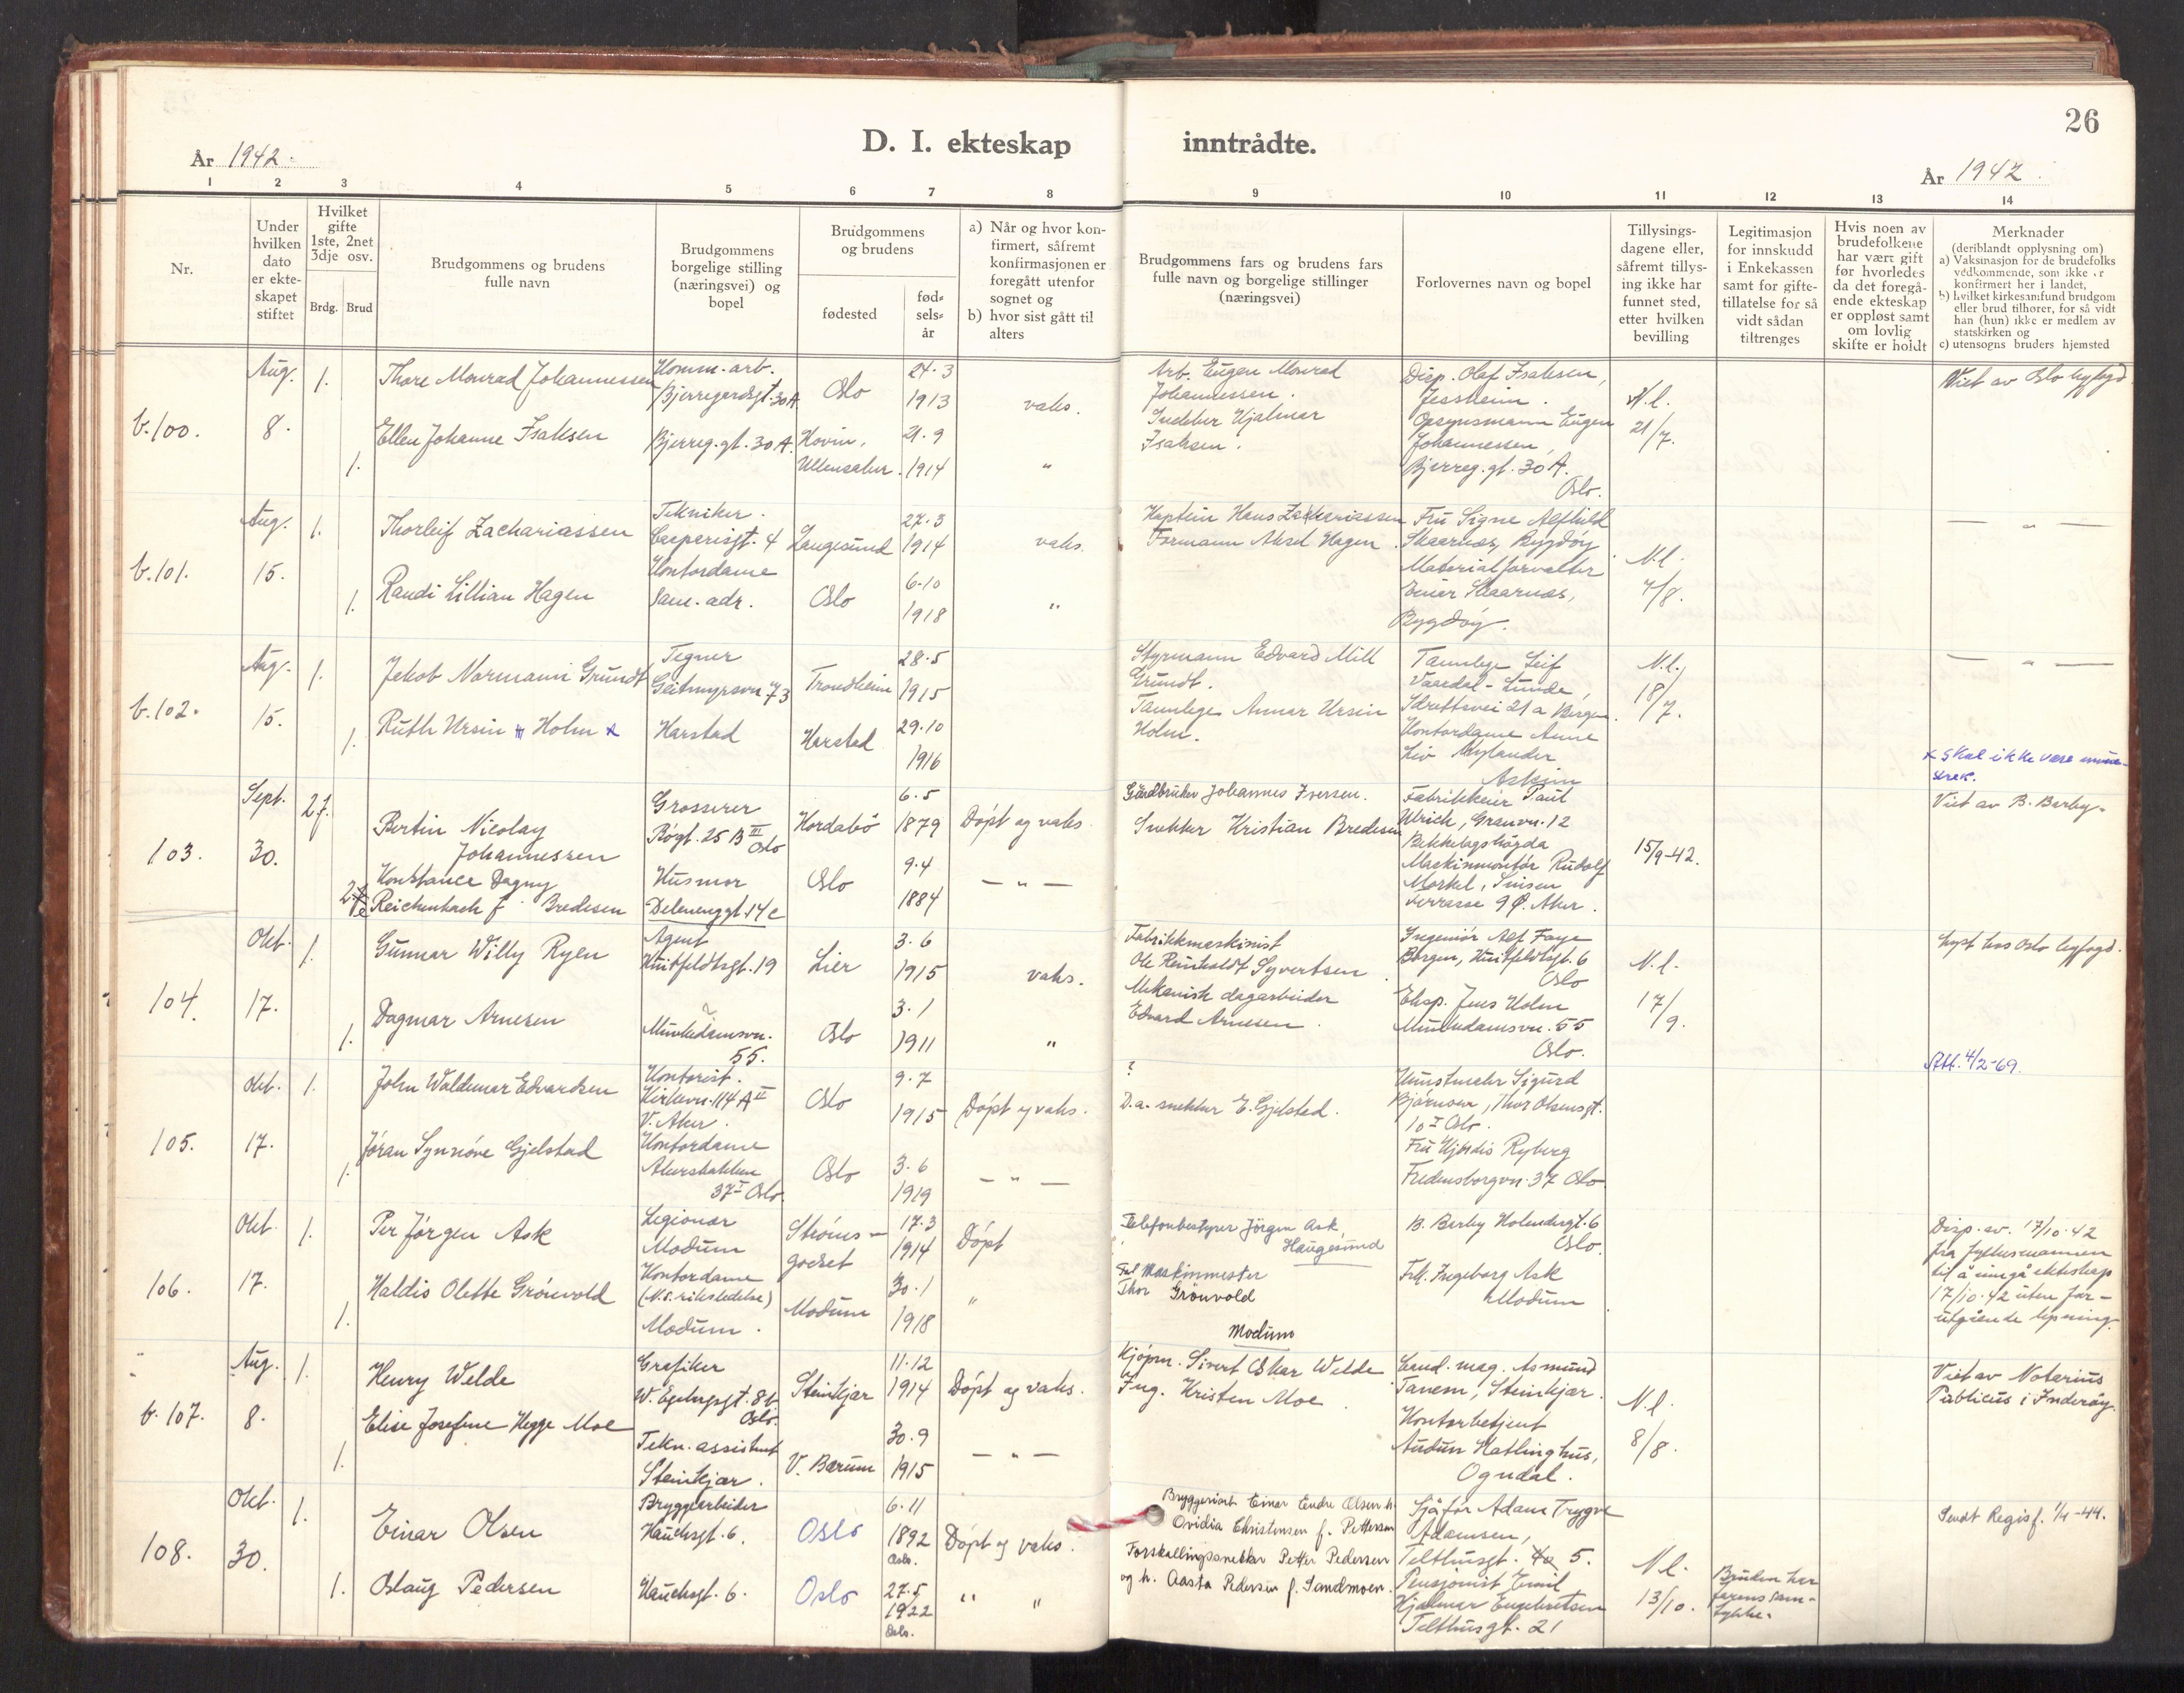 26
D. I. ekteskap inntrådte.
År 1942.
År 1942.
1 2 3 4 5 6 7 8 9 10 11 12 13 14
Nr.
Under
hvilken
dato
er ekte-
skapet
stiftet
Hvilket
gifte
1ste, 2net
3dje osv.
Brdg. Brud
Brudgommens og brudens
fulle navn
Brudgommens
borgelige stilling
(næringsvei) og
bopel
Brudgommens
og brudens
fødested
fød-
sels-
år
a) Når og hvor kon-
firmert, såfremt
konfirmasjonen er
foregått utenfor
sognet og
b) hvor sist gått til
alters
Brudgommens fars og brudens fars
fulle navn og borgelige stillinger
(næringsvei)
Forlovernes navn og bopel
Tillysings-
dagene eller,
såfremt tillys-
ing ikke har
funnet sted,
etter hvilken
bevilling
Legitimasjon
for innskudd
i Enkekassen
samt for gifte-
tillatelse for så
vidt sådan
tiltrenges
Hvis noen av
brudefolkene
har vært gift
før hvorledes
da det foregå-
ende ekteskap
er oppløst samt
om lovlig
skifte er holdt
Merknader
(deriblandt opplysning om)
a) Vaksinasjon for de brudefolks
vedkommende, som ikke er
konfirmert her i landet,
b) hvilket kirkesamfund brudgom
eller brud tilhører, for så vidt
han (hun) ikke er medlem av
statskirken og
c) utensogns bruders hjemsted
b.100.
Aug.
8.
1.
Thore Monrad Johannessen
Komm. arb.
Bjerregårdsgt. 30 A
Oslo
24.3
1913
vaks.
1.
Ellen Johanne Isaksen
Bjerreg.gt. 30 A.
Hovin,
Ullensaker.
21.9
1914
"
Arb. Eugen Monrad
Johannessen.
Snekker Hjalmar
Isaksen.
Disp. Olaf Isaksen,
Jessheim.
Opsynsmann Eugen
Johannessen,
Bjerreg.gt. 30 A.
Oslo.
N.l.
21/7.
Viet av Oslo byfogd.
b.101.
Aug.
15.
1.
Thorleif Zachariassen
Tekniker.
Casparisgt. 4
Langesund
27.3
1914
vaks.
1.
Randi Lillian Hagen
Kontordame
Sam. adr.
Oslo
6-10
1918
"
Kaptein Hans Zachariassen
Formann Aksel Hagen.
Fru Signe Alfhild
Skaarnæs, Bygdøy
Materialforvalter
Einar Skaarnæs,
Bygdøy.
N.l.
4/8.
— " —
b.102.
Aug.
15.
1.
Jakob Normann Grundt
Tegner
Geitmyrsvn. 73
Trondheim
28.5
1915
1.
Ruth Ursin Holm x
Harstad
Harstad
29.10
1916
Styrmann Edvard Mill
Grundt.
Tannlege Annar Ursin
Holm.
Tannlege Leif
Vaardal-Lunde,
Idrettsvei 21 a Bergen.
Kontordame Anne
Liv Nylander
Askim
N.l.
18/7.
— " —
x Skal ikke være
strek.
103.
Sept.
30.
2.
Bertin Nicolay
Johannessen
Grosserer
Bogt. 25 B III
Oslo
Hordabø
6.5
1879
Døpt og vaks.
2.
Konstance Dagny
Reichenbach f. Bredesen
Husmor
Delenenggt. 14 c
Oslo
9.4
1884
— " —
Gårdbruker Johannes Iversen.
Snekker Kristian Bredesen
Fabrikkeier Paul
Ulrich, Granvn. 12
Bekkelagshøgda
Maskinmontør Rudolf
Morkel, Sinsen
Terrasse 9 Ø. Aker.
15/9-42.
Viet av B. Barby.
104.
Okt.
17.
1.
Gunnar Willy Ryen
Agent
Huitfeldtsgt. 19
Lier
3.6
1915
vaks.
1.
Dagmar Arnesen
Munkedamsvn.
55.
Oslo
3.1
1911
"
Fabrikkmaskinist
Ole Reinholdt Syvertsen
Mekanisk dagarbeider
Edvard Arnesen.
Ingeniør Alf Faye
Borgen, Huitfeldtsgt. 6
Oslo
Eksp. Jens Holm
Munkedamsvn. 55
Oslo.
N.l.
17/9.
Lyst hos Oslo byfogd.
105.
Okt.
17.
1.
John Waldemar Edvardsen
Kontorist.
Kirkevn. 114 A II
V. Aker.
Oslo
9.7
1915
Døpt og vaks.
1.
Jøran Synnøve Gjelstad
Kontordame
Akersbakken
37 I Oslo.
Oslo
3.6
1919
— " —
?
D.a. snekker E. Gjelstad.
Kunstmaler Sigurd
Bjørnson, Thor Olsensgt.
10 I Oslo.
Fru Hjørdis Ryberg
Fredensborgvn. 37 Oslo
Att. 4/2-69.
106.
Okt
17.
1.
Per Jørgen Ask
Legionær
Modum
Strøms-
godset
17.3
1914
Døpt
1.
Haldis Olette Grønvold
Kontordame
(N.S. riksledelse)
Modum.
Modum
30.1
1918
"
Telefonbestyrer Jörgen Ask,
Haugesund
Maskinmester
Thor Grönvold
Modum
B. Barby Holendergt. 6
Oslo.
Frk. Ingeborg Ask
Modum
Disp. av. 17/10-42
fra fylkesmannen
til å inngå ekteskap
17/10-42 uten for-
utgående lysning.
b. 107.
Aug.
8.
1.
Henry Welde
Grafiker
W. Egebergsgt. 8 b
Oslo.
Steinkjær
11.12
1914
Døpt og vaks.
1.
Elise Josefine Hegge Moe
Tekn. assistent
Steinkjær.
V. Bærum
30.9
1915
— " —
Kjøpm. Sivert Oskar Welde
Ing. Kristen Moe.
Cand. mag. Asmund
Tanem, Steinkjær.
Kontorbetjent
Audun Hatlinghus,
Ogndal.
N.l.
8/8.
Viet av Notarius
Publicus i Inderøy.
108.
Okt.
30.
1.
Einar Olsen
Bryggearbeider
Hauchsgt. 6.
Oslo
6.11
1892
Oslo.
Døpt og vaks.
1.
Oslaug Pedersen
Hauchsgt. 6.
Oslo
27.5
1922
Oslo.
" "
Bryggeriarb Einar Endre Olsen h.
Ovidia Christensen f. Pettersen
Forskallingssnekker Petter Pedersen
og h. Aasta Pedersen f. Sandmoen.
Sjåfør Adam Trygve
Adamsen,
Telthusgt. 5.
Pensjonist Emil
Hjalmar Engebretsen
Telthusgt. 21
N.l.
13/10.
Bruden har
farens sam-
tykke.
Sendt Regisf. 1/4-44.